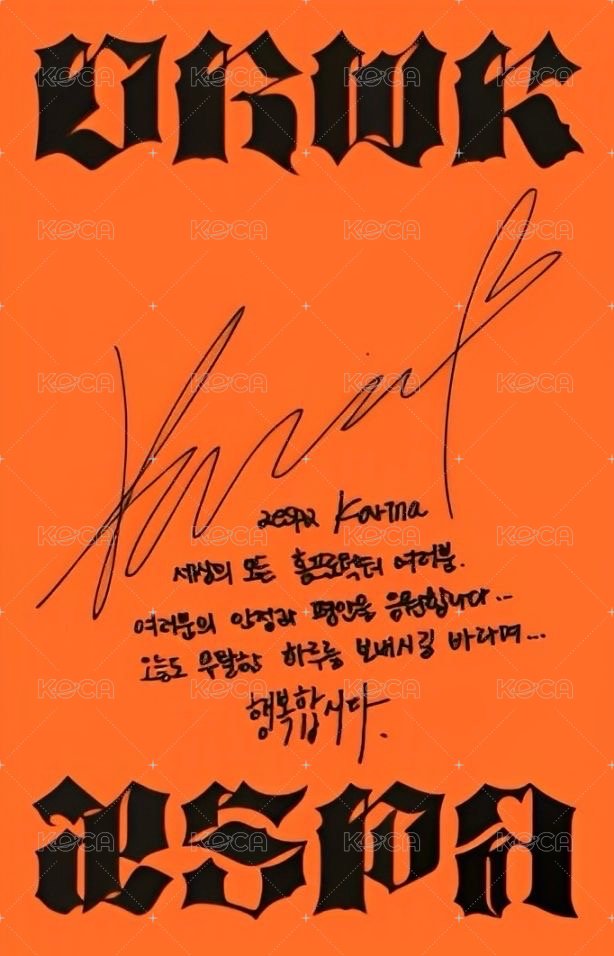 DRWK
Karina
aespa Karina
세상의 모든 홈프로텍터 여러분.
여러분의 안정과 평안을 응원합니다..
오늘도 무탈한 하루를 보내시길 바라며...
행복합시다.
aespa
KOCA